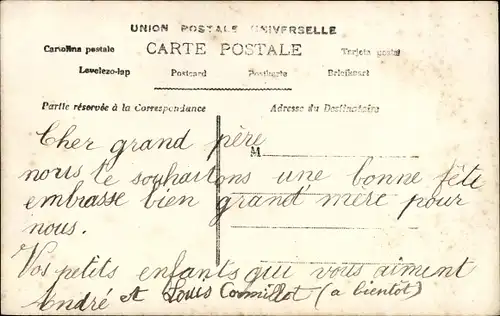 UNION POSTALE UNIVERSELLE
Cartolina postale CARTE POSTALE Tarjeta postal
Levelezo-lap Postcard Postkarte Briefkaart
Partie réservée à la Correspondance Adresse du Destinataire
Cher grand père
M
nous te souhaitons une bonne fête
embrasse bien grand'mère pour
nous.
Vos petits enfants qui vous aiment
André et Louis (a bientot)